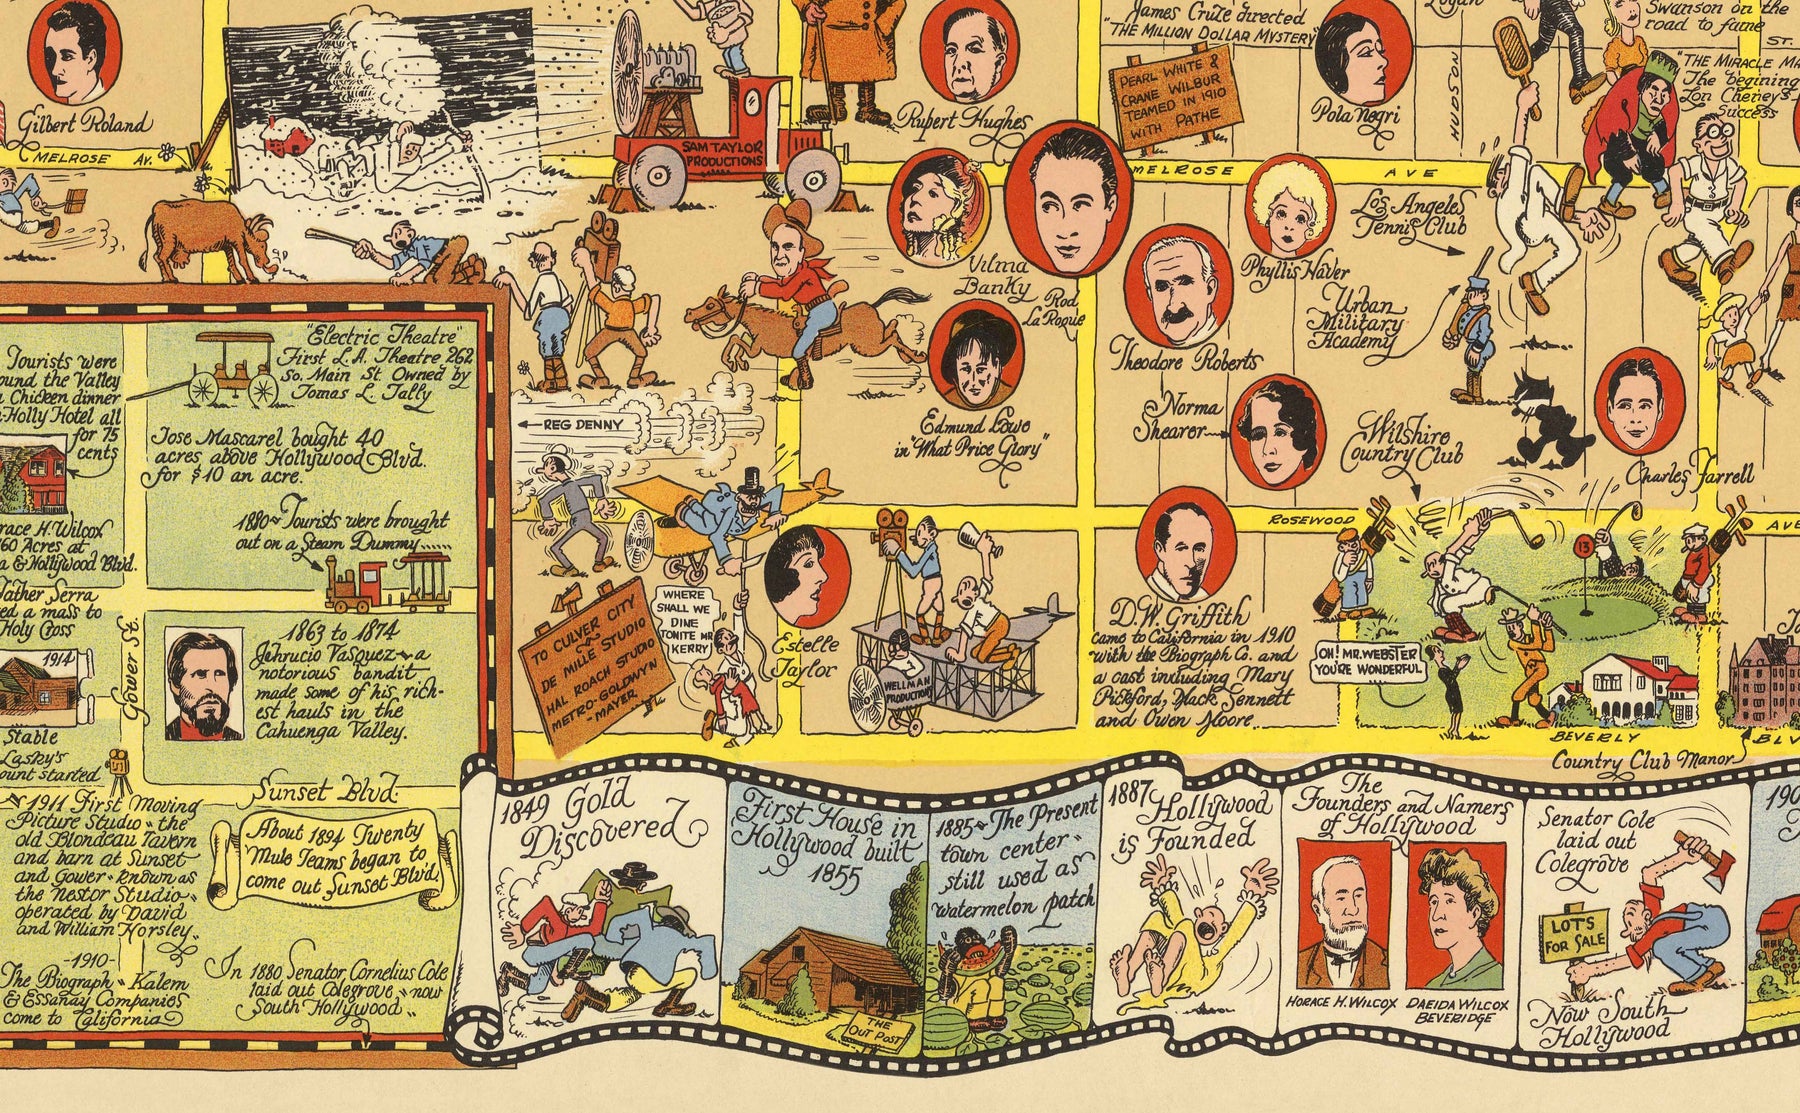 James Cruze directed
"THE MILLION DOLLAR MYSTERY"
Swanson on the
road to fame
ST.
Gilbert Roland
MELROSE AV.
SAM TAYLOR
PRODUCTIONS
Rupert Hughes
PEARL WHITE &
CRANE WILBUR
TEAMED IN 1910
WITH PATHE
Pola Negri
HUDSON
"THE MIRACLE MA
The begining
Lon Cheney's
Success
MELROSE AVE
Vilma
Banky
Rod
La Roque
Phyllis Haver
Los Angeles
Tennis Club
Urban
Military
Academy
Theodore Roberts
Edmund Lowe
in "What Price Glory"
Norma
Shearer
Wilshire
Country Club
Charles Farrell
REG DENNY
ROSEWOOD AVE
13
TO CULVER CITY
DE MILLE STUDIO
HAL ROACH STUDIO
METRO-GOLDWYN
-MAYER-
WHERE
SHALL WE
DINE
TONITE MR
KERRY
Estelle
Taylor
WELLMAN
PRODUCTION
D.W. Griffith
came to California in 1910
with the Biograph Co. and
a cast including Mary
Pickford, Mack Sennett
and Owen Moore.
OH! MR. WEBSTER
YOU'RE WONDERFUL
BEVERLY BLV
Country Club Manor
Tourists were
ound the Valley
a Chicken dinner
-Holly Hotel all
for 75
cents
"Electric Theatre"
First L.A. Theatre 262
So. Main St. Owned by
Tomas L. Tally
Jose Mascarel bought 40
acres above Hollywood Blvd.
for $10 an acre.
race H. Wilcox
160 Acres at
a & Hollywood Blvd.
1880~Tourists were brought
out on a Steam Dummy
Father Serra
ed a mass to
Holy Cross
1914
Stable
Lasky's
ount started
Gower St.
1863 to 1874
Jehrucio Vasquez~a
notorious bandit
made some of his rich-
est hauls in the
Cahuenga Valley.
~1911 First Moving
Picture Studio~the
old Blondeau Tavern
and barn at Sunset
and Gower~known as
the Nestor Studio~
operated by David
and William Horsley.
-1910-
The Biograph~Kalem
& Essanay Companies
come to California
Sunset Blvd.
About 1894 Twenty
Mule Teams began to
come out Sunset Blvd.
In 1880 Senator Cornelius Cole
laid out Colegrove~now
South Hollywood
1849 Gold
Discovered
First House in
Hollywood built
1855
THE
OUT POST
1885~The Present
town center~
still used as
watermelon patch
1887 Hollywood
is Founded
The
Founders and Namers
of Hollywood
HORACE H. WILCOX
DAEIDA WILCOX
BEVERIDGE
Senator Cole
laid out
Colegrove
LOTS
FOR SALE
Now South
Hollywood
190